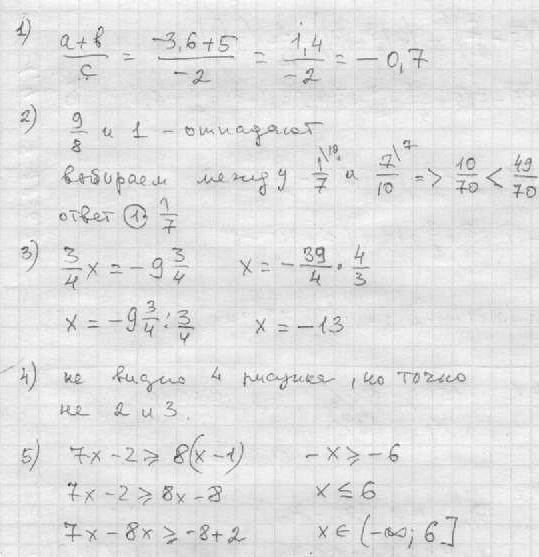 1) (a+b)/c = (-3,6+5)/-2 = 1,4/-2 = -0,7
2) 9/8 и 1 - отпадают
выбираем между 1\10/7 и 7\7/10 => 10/70 < 49/70
ответ ① 1/7
3) 3/4 x = -9 3/4   x = -39/4 · 4/3
x = -9 3/4 : 3/4   x = -13
4) не видно 4 рисунка, но точно
не 2 и 3.
5) 7x-2 ≥ 8(x-1)   -x ≥ -6
7x-2 ≥ 8x-8   x ≤ 6
7x-8x ≥ -8+2   x ∈ (-∞; 6]